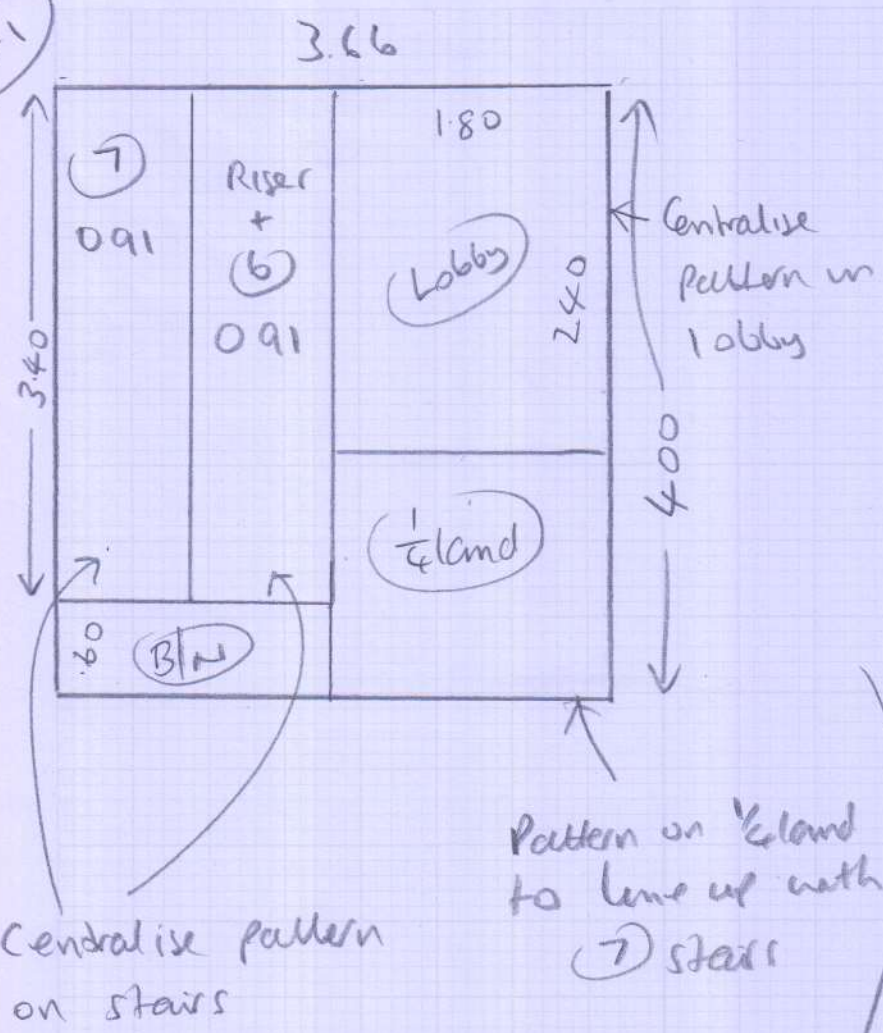 3.66
7
091
Riser
+
6
091
1.80
Lobby
240
3.40
400
Centralise
pattern in
lobby
1/4 land
.60
B/N
Pattern on 1/4 land
to line up with
7 stairs
Centralise pattern
on stairs